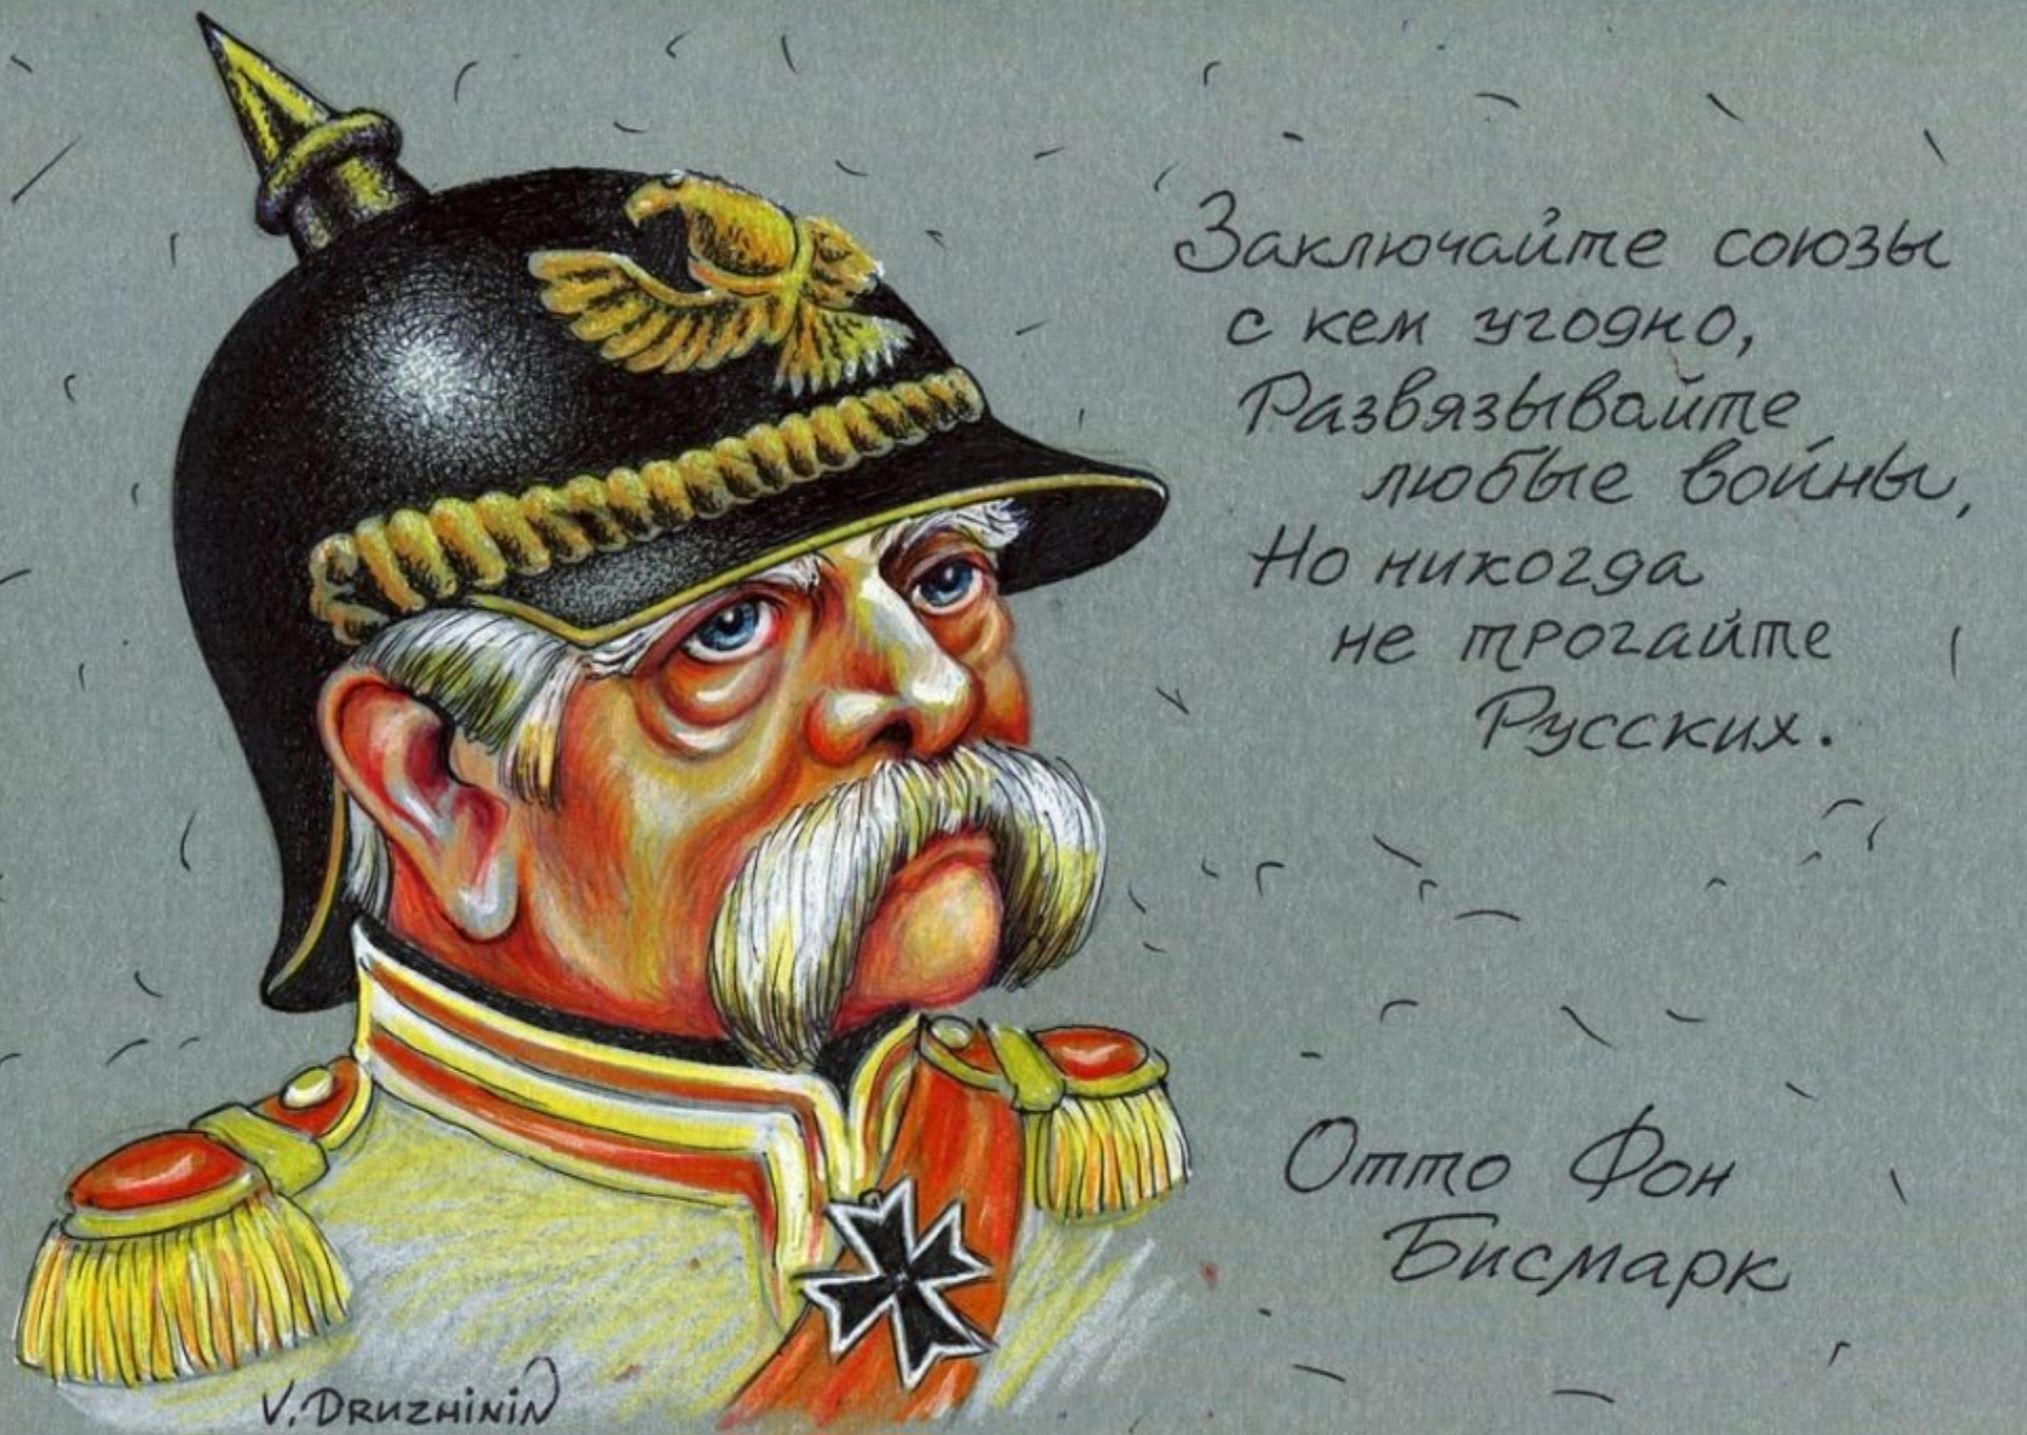 Заключайте союзы
с кем угодно,
Развязывайте
любые войны,
Но никогда
не трогайте
Русских.
Отто Фон
Бисмарк
V. DRUZHININ